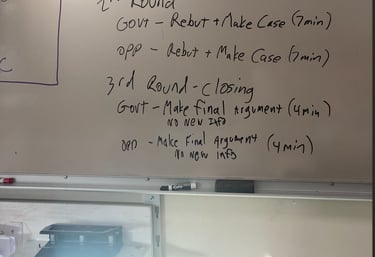 2nd Round
Govt - Rebut + Make Case (7min)
Opp - Rebut + Make Case (7min)
3rd Round - Closing
Govt - Make Final Argument (4min)
No New Info
Opp - Make Final Argument (4min)
No New Info
C